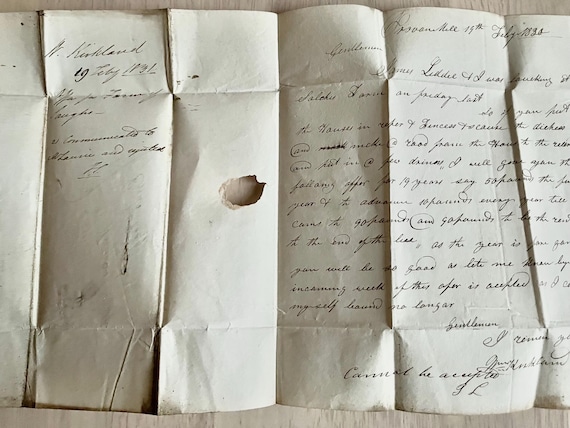 W. Kirkland
19 Feby 1831
Offer for Farm of
communicated to
and rejected
Provanmill 19th Feby 1830
Gentlemen
James Liddle & I was looking at
Farm on friday last
So if you put
the Houses in reper & Fincess & scouce the diches
and make @ road frome the House to the
and put in @ few draines, I will gove you the
folloing offer for 19 years say 50 pound the first
year & to advance 10 pounds every year till
cums to 90 pounds and 90 pounds to be the rent
to the end of the lies, as the year is far gon
you will be so good as lete me know by
incoming week if this offer is acepted as I c
myself bound no longar
Gentlemen
I remen y
Wm Kirkland
Cannot be accepted
J L